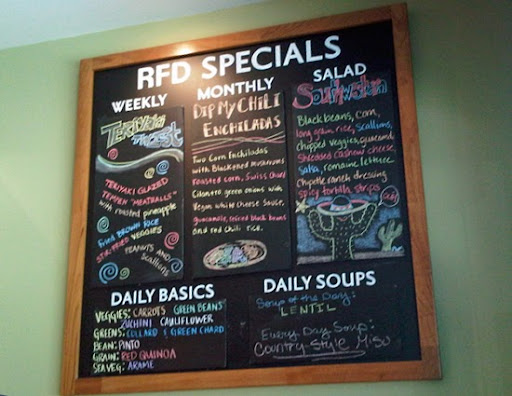 RFD SPECIALS
WEEKLY
TERIYAKI
TEMPEH "MEATBALLS"
TERIYAKI GLAZED
with roasted pineapple
Fried BROWN RICE
STIR-FRIED VEGGIES
PEANUTS AND
scallions
MONTHLY
DIP MY CHILI
ENCHILADAS
Two Corn Enchiladas
with Blackened mushrooms
roasted corn, Swiss Chard
Cilantro green onions with
Vegan white cheese Sauce,
guacamole, spiced black beans
and red chili rice.
SALAD
Southwestern
Black beans, corn,
long grain rice, scallions,
chopped veggies, guacamole
Shredded cashew cheese,
salsa, romaine lettuce
Chipotle ranch dressing
spicy tortilla strips
DAILY BASICS
VEGGIES: CARROTS GREEN BEANS
ZUCHINI CAULIFLOWER
GREENS: COLLARD & GREEN CHARD
BEAN: PINTO
GRAIN: RED QUINOA
SEA VEG: ARAME
DAILY SOUPS
Soup of the Day:
LENTIL
Every Day Soup:
Country-Style Miso